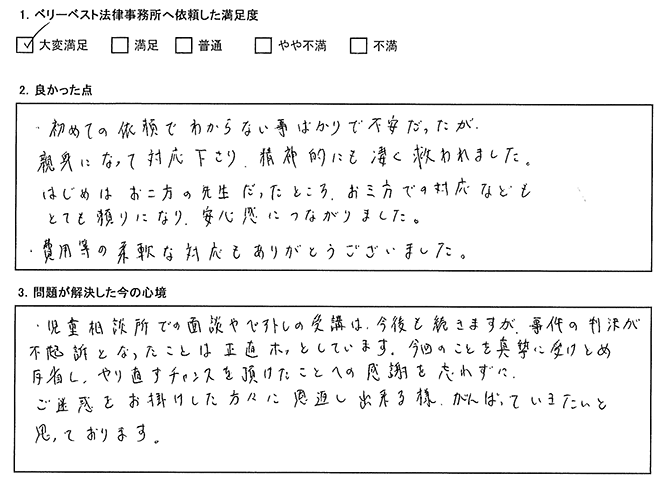 1. ベリーベスト法律事務所へ依頼した満足度
☑ 大変満足 □ 満足 □ 普通 □ やや不満 □ 不満
2. 良かった点
・初めての依頼でわからない事ばかりで不安だったが、
親身になって対応下さり、精神的にも凄く救われました。
はじめは お二方の先生だったところ、お三方での対応なども
とても頼りになり、安心感につながりました。
・費用等の柔軟な対応もありがとうございました。
3. 問題が解決した今の心境
・児童相談所での面談やペアトレの受講は、今後も続きますが、事件の判決が
不起訴となったことは正直ホッとしています。今回のことを真摯に受けとめ
反省し、やり直すチャンスを頂けたことへの感謝を忘れずに、
ご迷惑をお掛けした方々に恩返し出来る様、がんばっていきたいと
思っております。